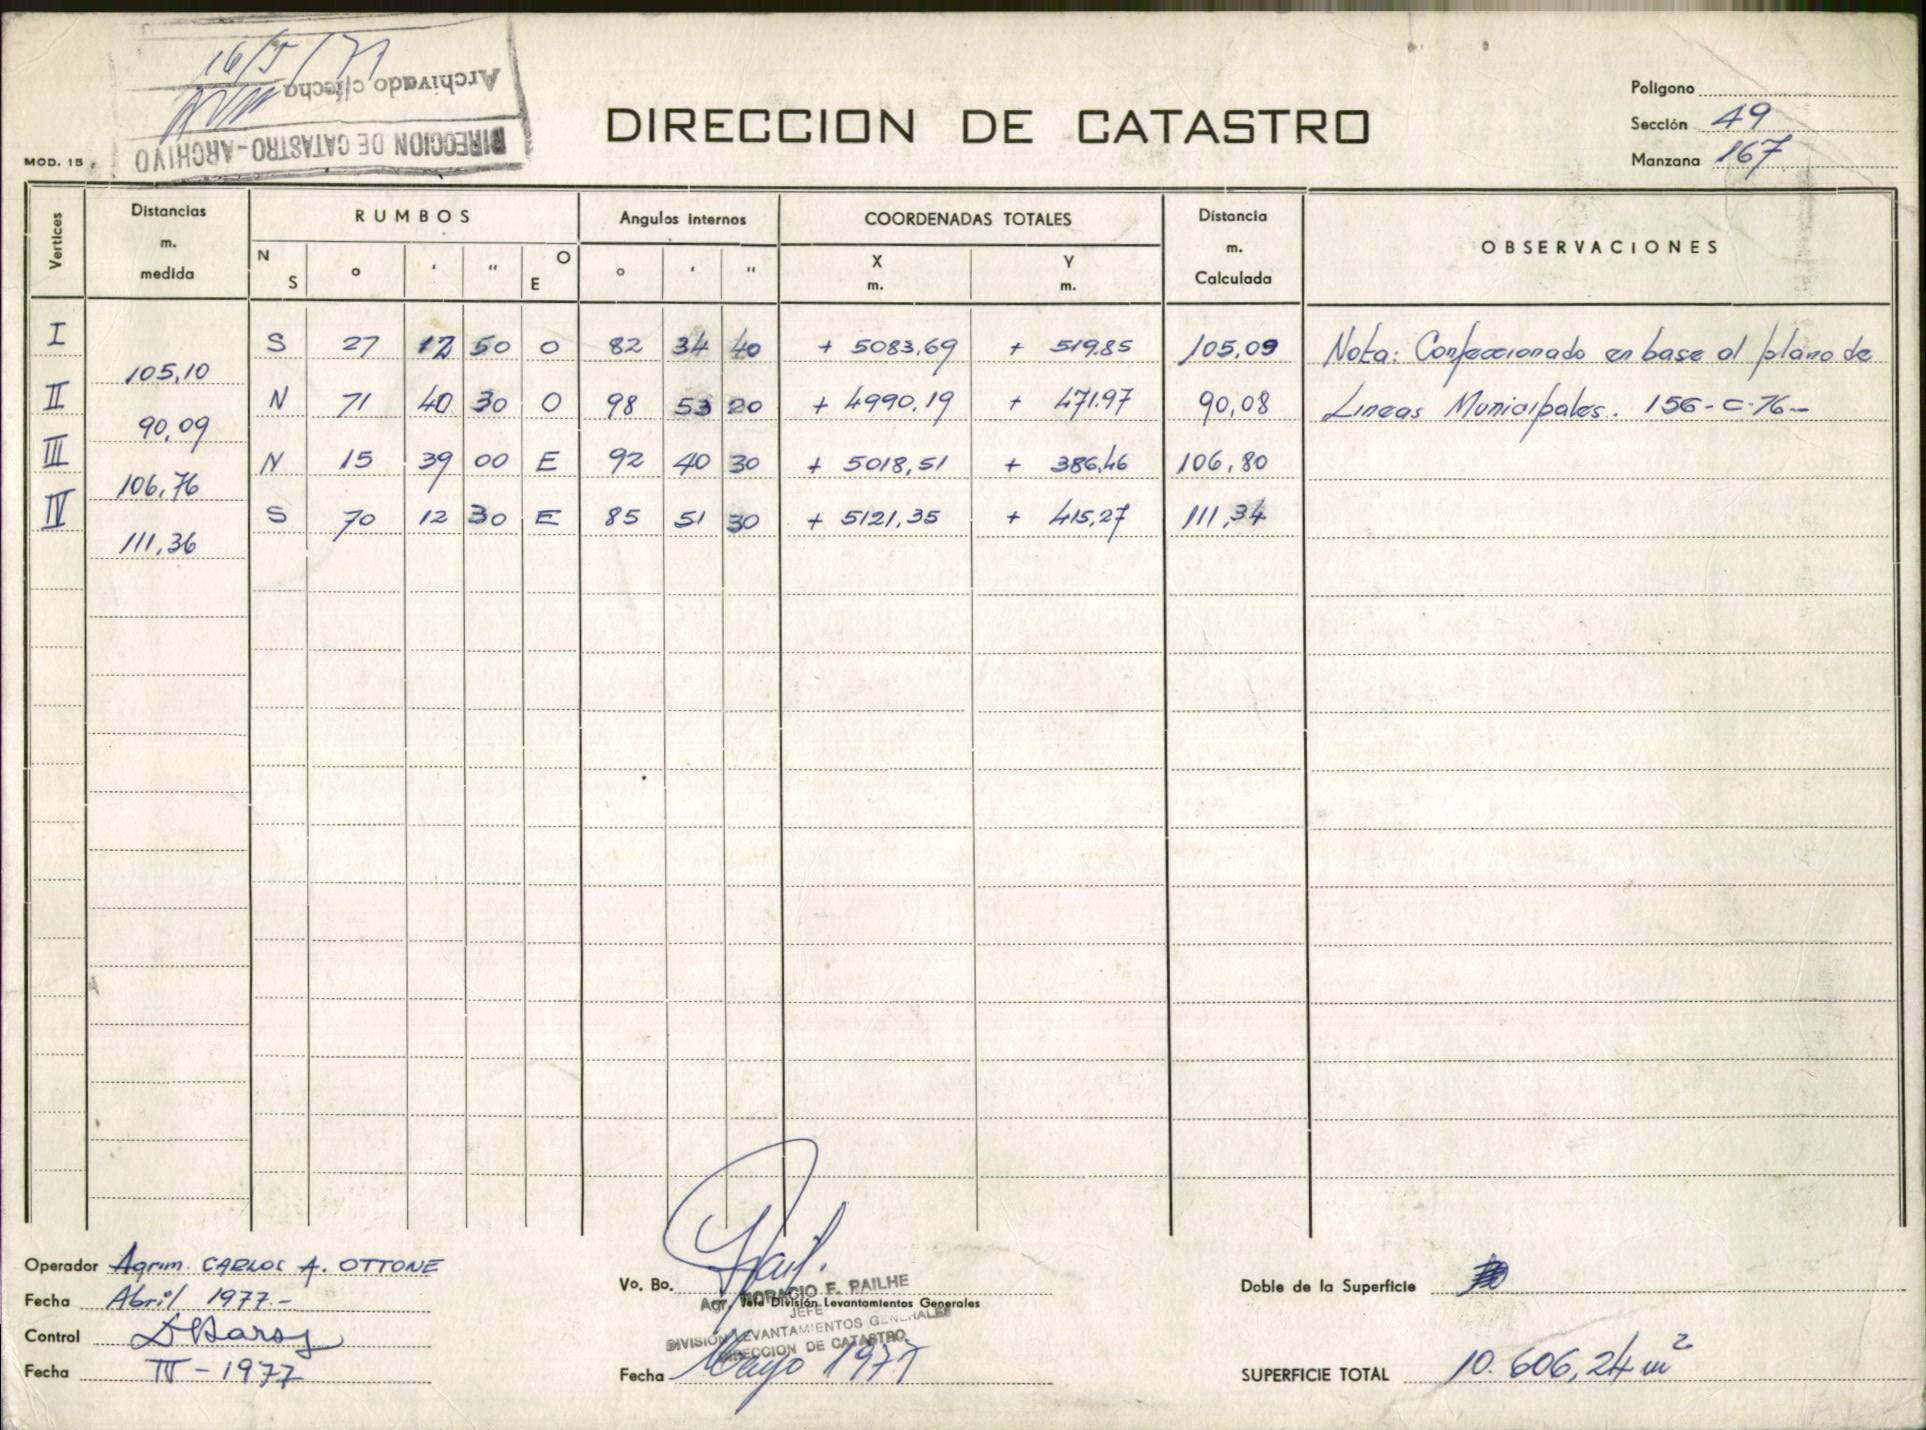 16/5/77
Archivado c/fecha
DIRECCION DE CATASTRO-ARCHIVO
MOD. 15
DIRECCION DE CATASTRO
Poligono
Sección 49
Manzana 167
Vertices
Distancias m. medida
RUMBOS
Angulos internos
COORDENADAS TOTALES
Distancia m. Calculada
OBSERVACIONES
N S ° ' " O E
° ' "
X m.
Y m.
I S 27 12 50 O 82 34 40 + 5083,69 + 519,85 105,09 Nota: Confeccionado en base al plano de
105,10
II N 71 40 30 O 98 53 20 + 4990,19 + 471,97 90,08 Lineas Municipales. 156-C-76-
90,09
III N 15 39 00 E 92 40 30 + 5018,51 + 386,46 106,80
106,76
IV S 70 12 30 E 85 51 30 + 5121,35 + 415,27 111,34
111,36
Operador Agrim. CARLOS A. OTTONE
Fecha Abril 1977.-
Control
Fecha III-1977
Vo. Bo.
Agr. HORACIO F. PAILHE
Jefe División Levantamientos Generales
JEFE
DIVISION LEVANTAMIENTOS GENERALES
DIRECCION DE CATASTRO
Fecha Mayo 1977
Doble de la Superficie
SUPERFICIE TOTAL 10.606,24 m²